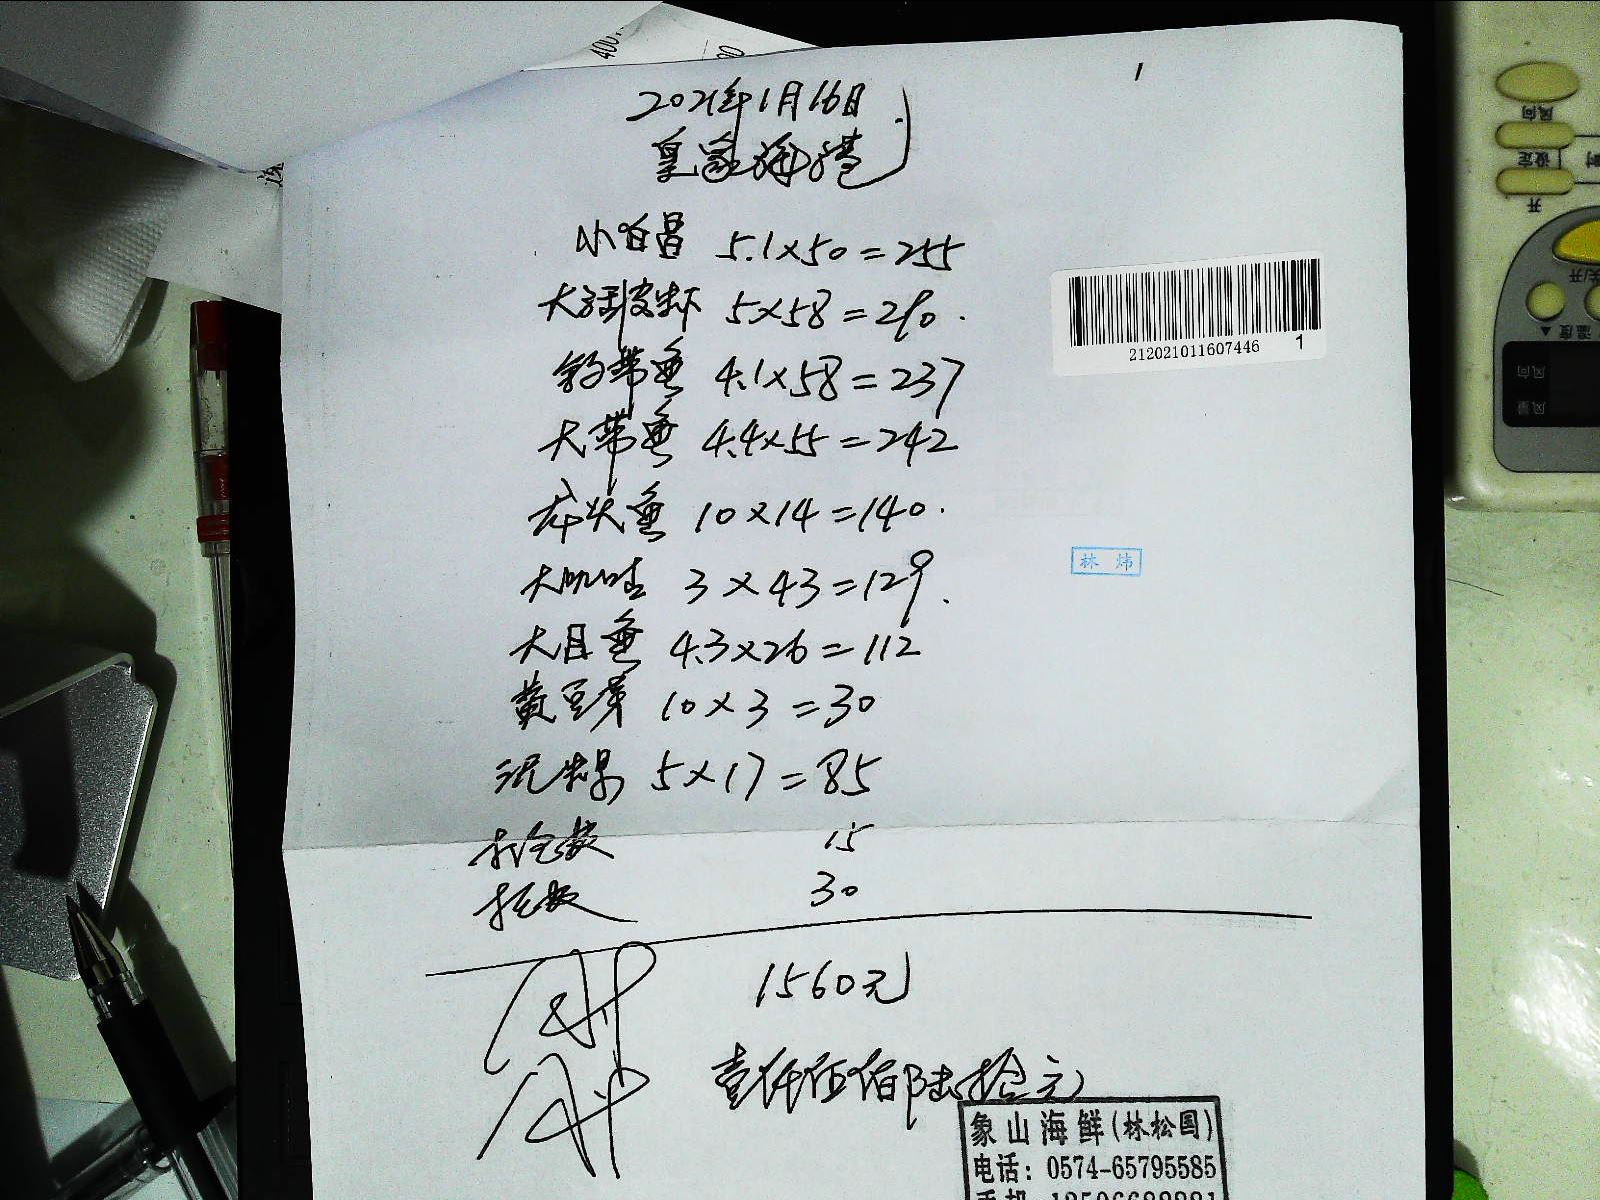 2021年1月16日
皇家海港
小白昌 5.1×50=255
大活皮虾 5×58=290.
钓带鱼 4.1×58=237
大带鱼 4.4×55=242
龙头鱼 10×14=140.
大 3×43=129.
大目鱼 4.3×26=112
黄豆芽 10×3=30
泥 5×17=85
15
30
1560元
壹仟伍佰陆拾元
212021011607446 1
林 炜
象山海鲜(林松圆)
电话: 0574-65795585
风向
设定
开
关/开
温度▲
风向
风量